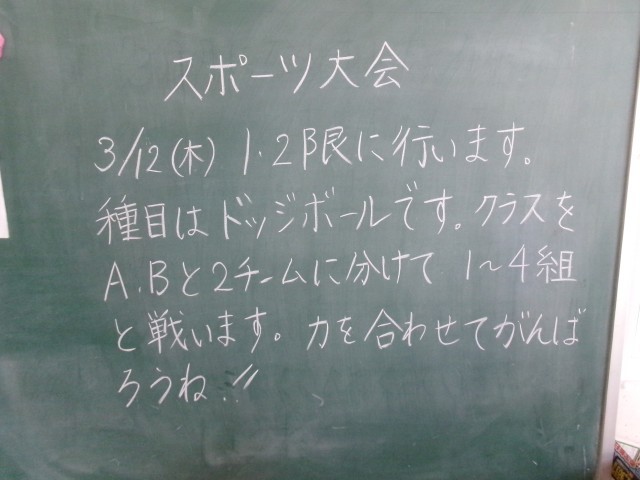 スポーツ大会
3/12(木) 1.2限に行います。
種目はドッジボールです。クラスを
A.Bと2チームに分けて 1～4組
と戦います。力を合わせてがんば
ろうね!!